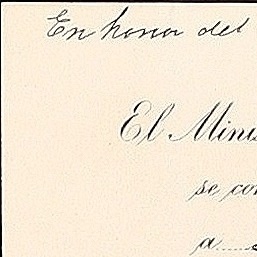 En honor del
El Minis
se con
a......